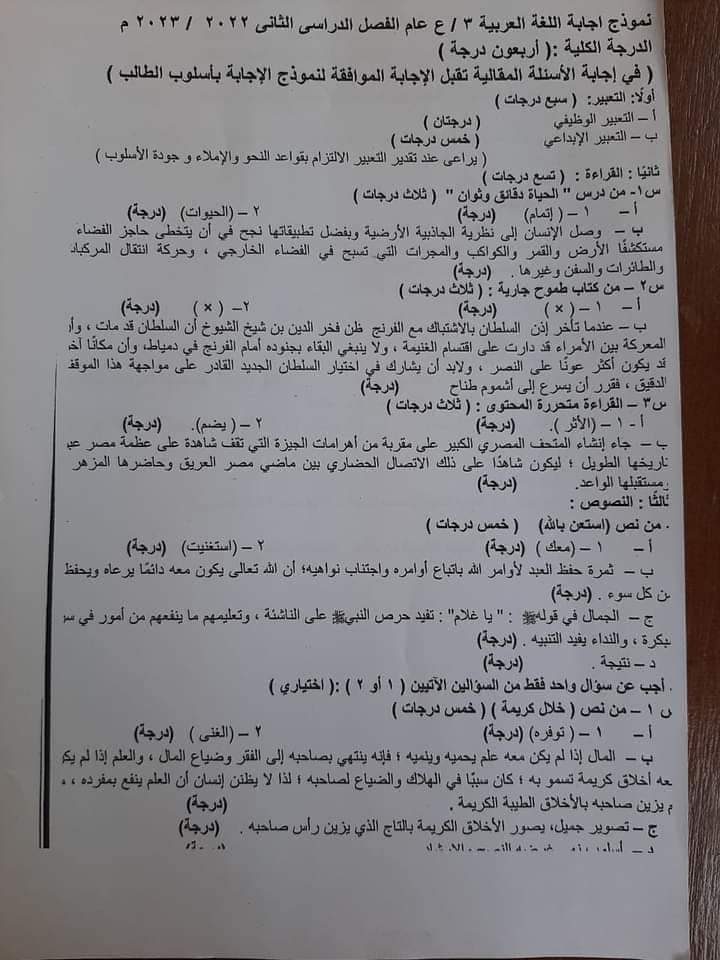 نموذج اجابة اللغة العربية ٣ / ع عام الفصل الدراسى الثانى ٢٠٢٢ / ٢٠٢٣ م
الدرجة الكلية :( أربعون درجة )
( في إجابة الأسئلة المقالية تقبل الإجابة الموافقة لنموذج الإجابة بأسلوب الطالب )
أولًا: التعبير: ( سبع درجات )
أ – التعبير الوظيفي ( درجتان )
ب – التعبير الإبداعي ( خمس درجات )
( يراعى عند تقدير التعبير الالتزام بقواعد النحو والإملاء و جودة الأسلوب )
ثانيًا : القراءة : ( تسع درجات )
س١- من درس " الحياة دقائق وثوان " ( ثلاث درجات )
أ – ١ – (إتمام) (درجة) ٢ – (الحيوات) (درجة)
ب – وصل الإنسان إلى نظرية الجاذبية الأرضية وبفضل تطبيقاتها نجح في أن يتخطى حاجز الفضاء
مستكشفًا الأرض والقمر والكواكب والمجرات التي تسبح في الفضاء الخارجي ، وحركة انتقال المركبات
والطائرات والسفن وغيرها . (درجة)
س٢ – من كتاب طموح جارية : ( ثلاث درجات )
أ – ١ – ( × ) (درجة) ٢– ( × ) (درجة)
ب – عندما تأخر إذن السلطان بالاشتباك مع الفرنج ظن فخر الدين بن شيخ الشيوخ أن السلطان قد مات ، وأن
المعركة بين الأمراء قد دارت على اقتسام الغنيمة ، ولا ينبغي البقاء بجنوده أمام الفرنج في دمياط، وأن مكانًا آخر
قد يكون أكثر عونًا على النصر ، ولابد أن يشارك في اختيار السلطان الجديد القادر على مواجهة هذا الموقف
الدقيق ، فقرر أن يسرع إلى أشموم طناح (درجة)
س٣ – القراءة متحررة المحتوى : ( ثلاث درجات )
أ - ١ – (الأثر ). (درجة) ٢ – (يضم). (درجة)
ب – جاء إنشاء المتحف المصري الكبير على مقربة من أهرامات الجيزة التي تقف شاهدة على عظمة مصر عبر
تاريخها الطويل ؛ ليكون شاهدًا على ذلك الاتصال الحضاري بين ماضي مصر العريق وحاضرها المزهر
ومستقبلها الواعد. (درجة)
ثالثًا : النصوص :
من نص (استعن بالله) ( خمس درجات )
أ – ١ – (معك ) (درجة) ٢ – (استغنيت) (درجة)
ب – ثمرة حفظ العبد لأوامر الله باتباع أوامره واجتناب نواهيه؛ أن الله تعالى يكون معه دائمًا يرعاه ويحفظ
من كل سوء . (درجة)
ج – الجمال في قولهﷺ : " يا غلام" : تفيد حرص النبيﷺ على الناشئة ، وتعليمهم ما ينفعهم من أمور في
مبكرة ، والنداء يفيد التنبيه . (درجة)
د – نتيجة . (درجة)
أجب عن سؤال واحد فقط من السؤالين الآتيين ( ١ أو ٢ ) :( اختياري )
س ١ – من نص ( خلال كريمة ) ( خمس درجات )
أ – ١ – ( توفره) (درجة) ٢ – (الغنى ) (درجة)
ب – المال إذا لم يكن معه علم يحميه وينميه ؛ فإنه ينتهي بصاحبه إلى الفقر وضياع المال ، والعلم إذا لم يكن
معه أخلاق كريمة تسمو به ؛ كان سببًا في الهلاك والضياع لصاحبه ؛ لذا لا يظنن إنسان أن العلم ينفع بمفرده ،
لم يزين صاحبه بالأخلاق الطيبة الكريمة . (درجة)
ج – تصوير جميل، يصور الأخلاق الكريمة بالتاج الذي يزين رأس صاحبه . (درجة)